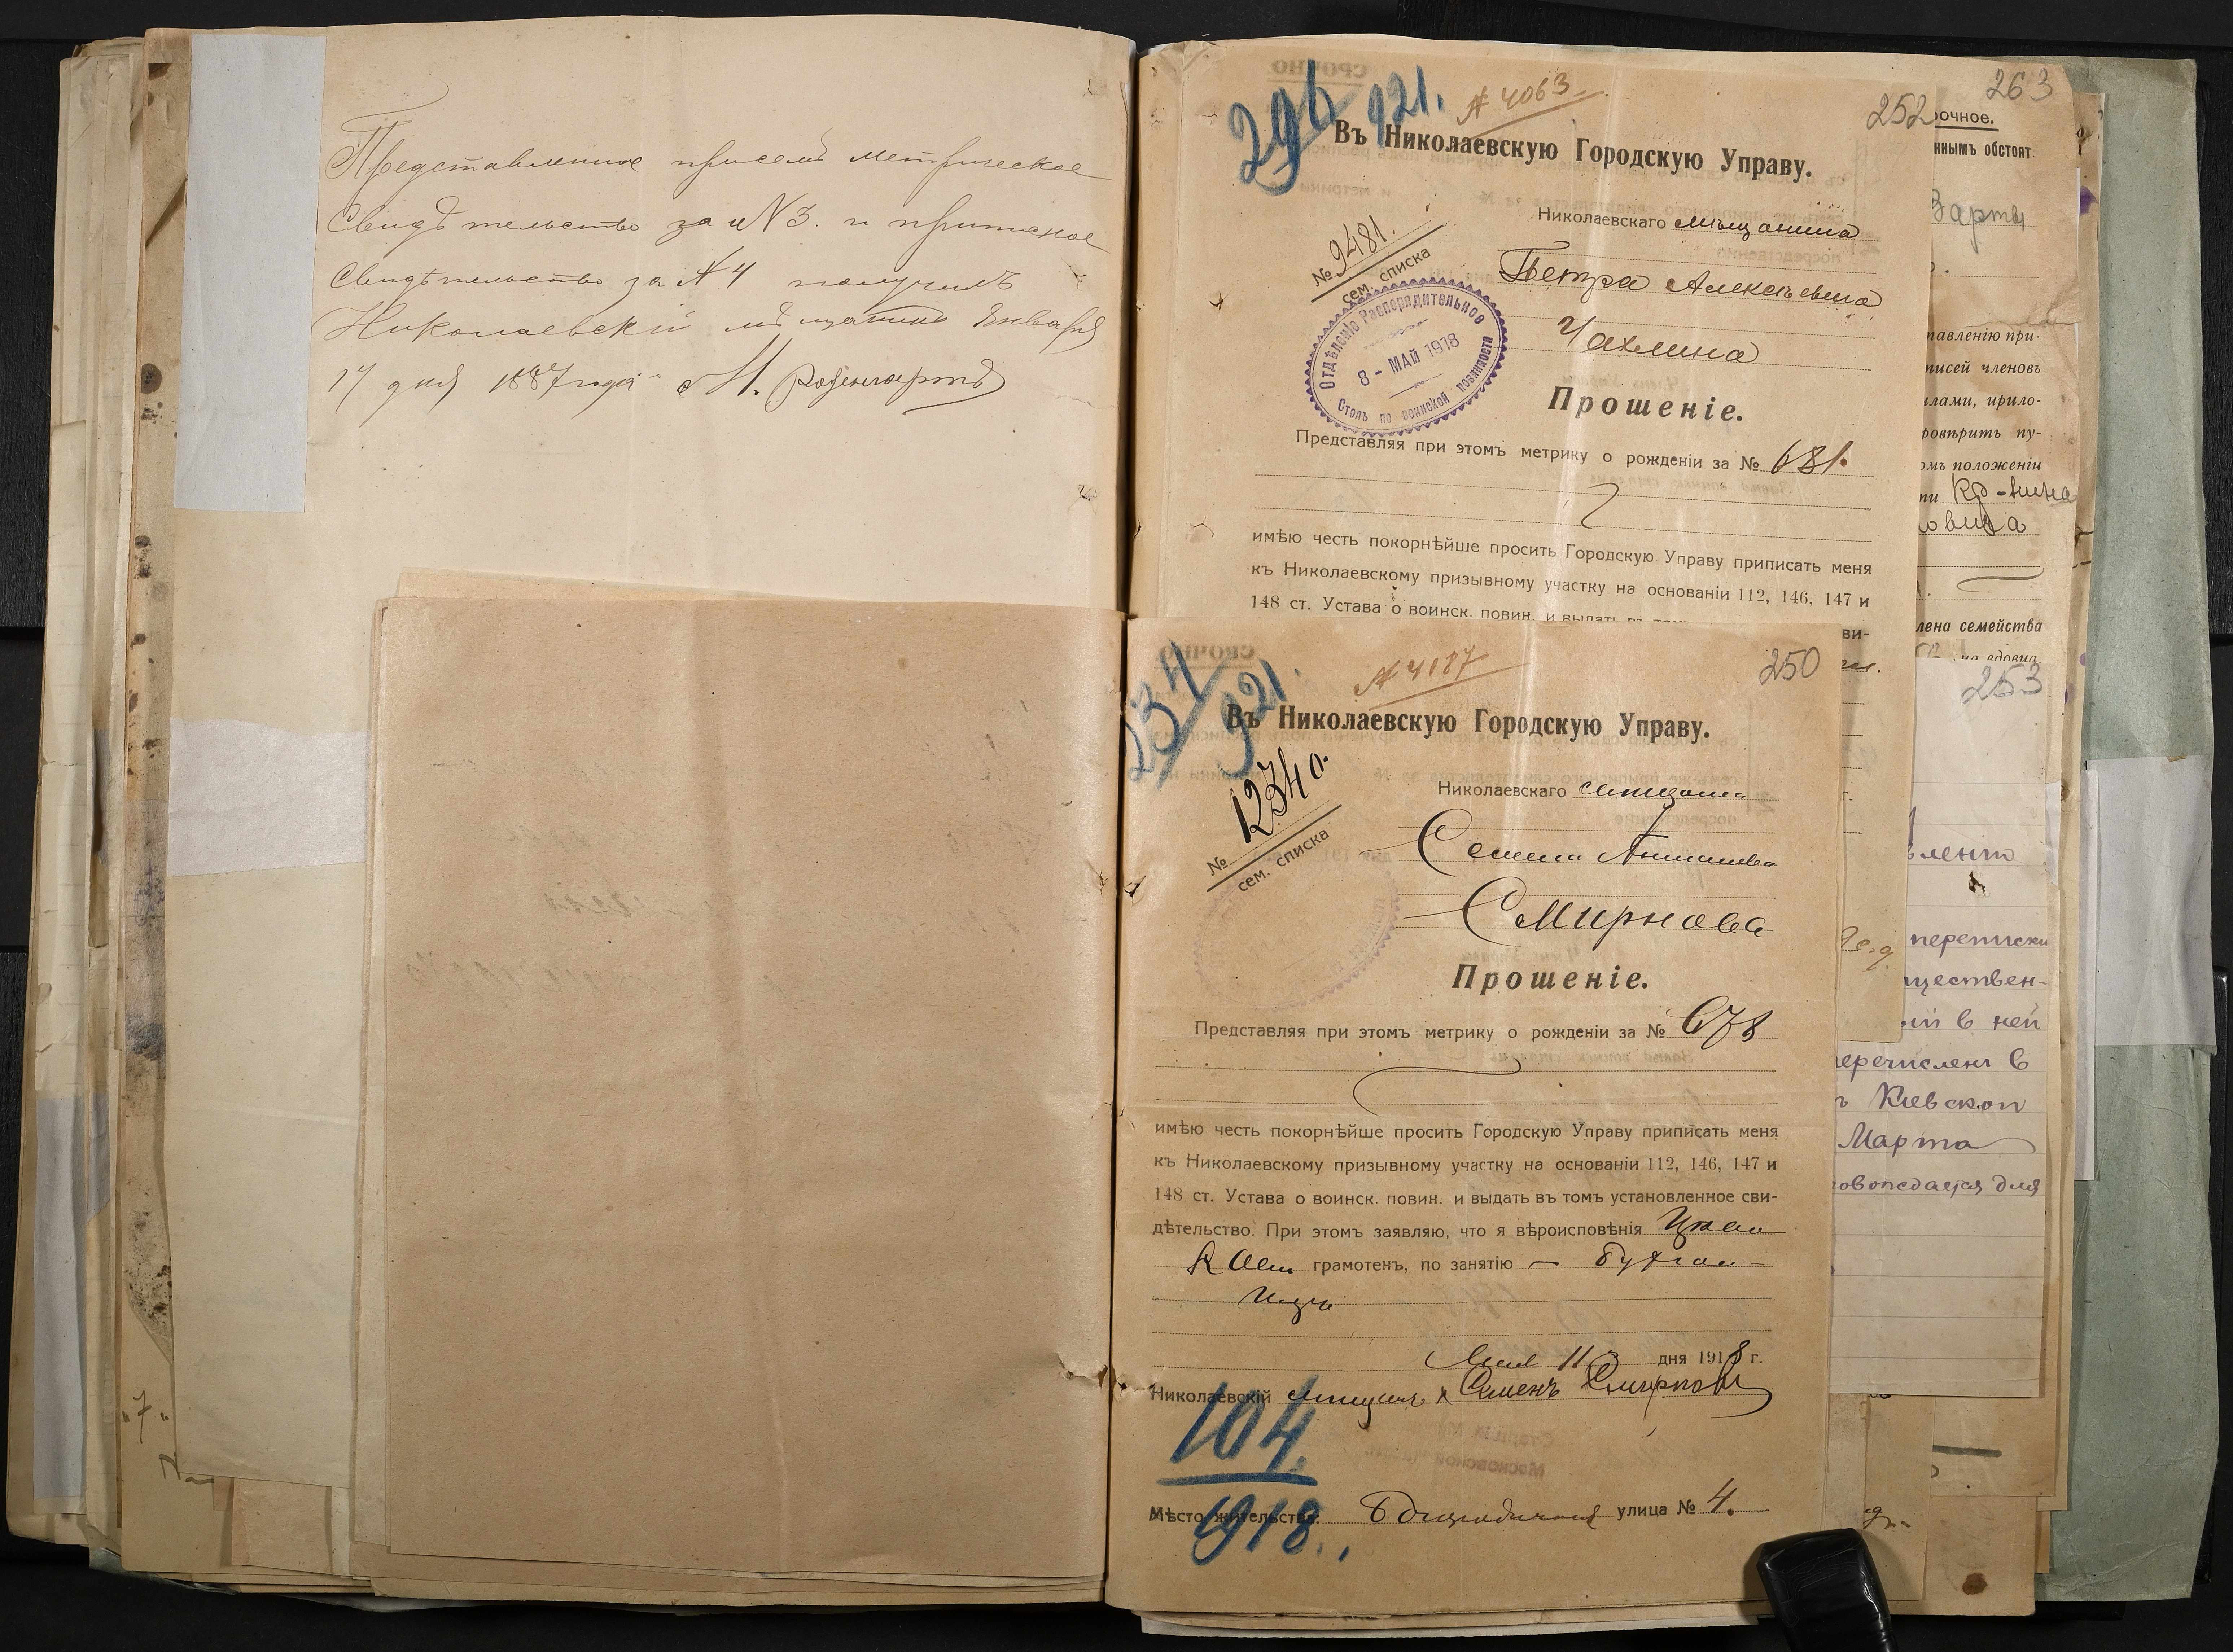 Представленное присемъ метрическое
Свидѣтельство за № 3. и приписное
Свидѣтельство за № 4 получилъ
Николаевскій мѣщанинъ Января
17 дня 1887 года М. Розенгартъ
296
921.
№ 4063
252
Въ Николаевскую Городскую Управу.
Николаевскаго мѣщанина
№ 9481.
сем. списка
Петра Алексѣевича
Чахлина
Отдѣленіе Распорядительное
8 - МАЙ 1918
Столъ по воинской повинности
Прошеніе.
Представляя при этомъ метрику о рожденіи за № 681.
имѣю честь покорнѣйше просить Городскую Управу приписать меня
къ Николаевскому призывному участку на основаніи 112, 146, 147 и
148 ст. Устава о воинск. повин. и выдать въ
ви-
234
921.
№ 4187
250
Въ Николаевскую Городскую Управу.
№ 12340.
сем. списка
Николаевскаго
Семена
Смирнова
Прошеніе.
Представляя при этомъ метрику о рожденіи за № 678
имѣю честь покорнѣйше просить Городскую Управу приписать меня
къ Николаевскому призывному участку на основаніи 112, 146, 147 и
148 ст. Устава о воинск. повин. и выдать въ томъ установленное сви-
дѣтельство. При этомъ заявляю, что я вѣроисповѣнія
грамотенъ, по занятію
Мая 11 дня 1918 г.
Николаевскій Семенъ Смирновъ
104.
1918.
Мѣсто жительства: улица № 4.
263
очное.
ннымъ обстоят
тавленію при-
писей членовъ
лами, прило-
ровѣрить пу-
омъ положеніи
ти
лена семейства
на вдовца
253
вленіи
переписки
ществен-
ій в ней
еречислен в
Киевской
Марта